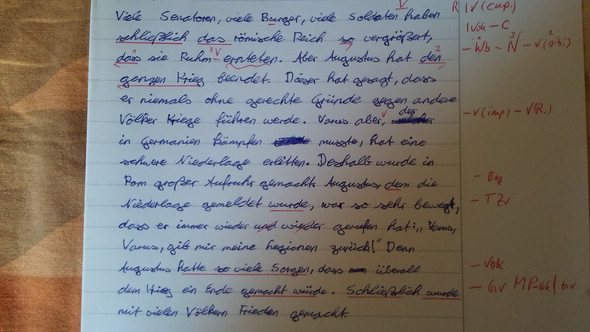 Viele Senatoren, viele Bürger, viele Soldaten haben
schließlich das römische Reich so vergrößert,
dass sie Ruhm ernteten. Aber Augustus hat den
ganzen Krieg beendet. Dieser hat gesagt, dass
er niemals ohne gerechte Gründe gegen andere
Völker Kriege führen werde. Varus aber, der
in Germanien kämpfen musste, hat eine
schwere Niederlage erlitten. Deshalb wurde in
Rom großer Aufruhr gemacht. Augustus, dem die
Niederlage gemeldet wurde, war so sehr bewegt,
dass er immer wieder und wieder gerufen hat: „Varus,
Varus, gib mir meine Legionen zurück!" Denn
Augustus hatte so viele Sorgen, dass überall
dem Krieg ein Ende gemacht würde. Schließlich wurde
mit vielen Völkern Frieden gemacht
V
R IV (cup.)
IVok - C
- Wb - N - V (sibi)
- V (imp) - V(R.)
- Bez
- TZv
- Vok